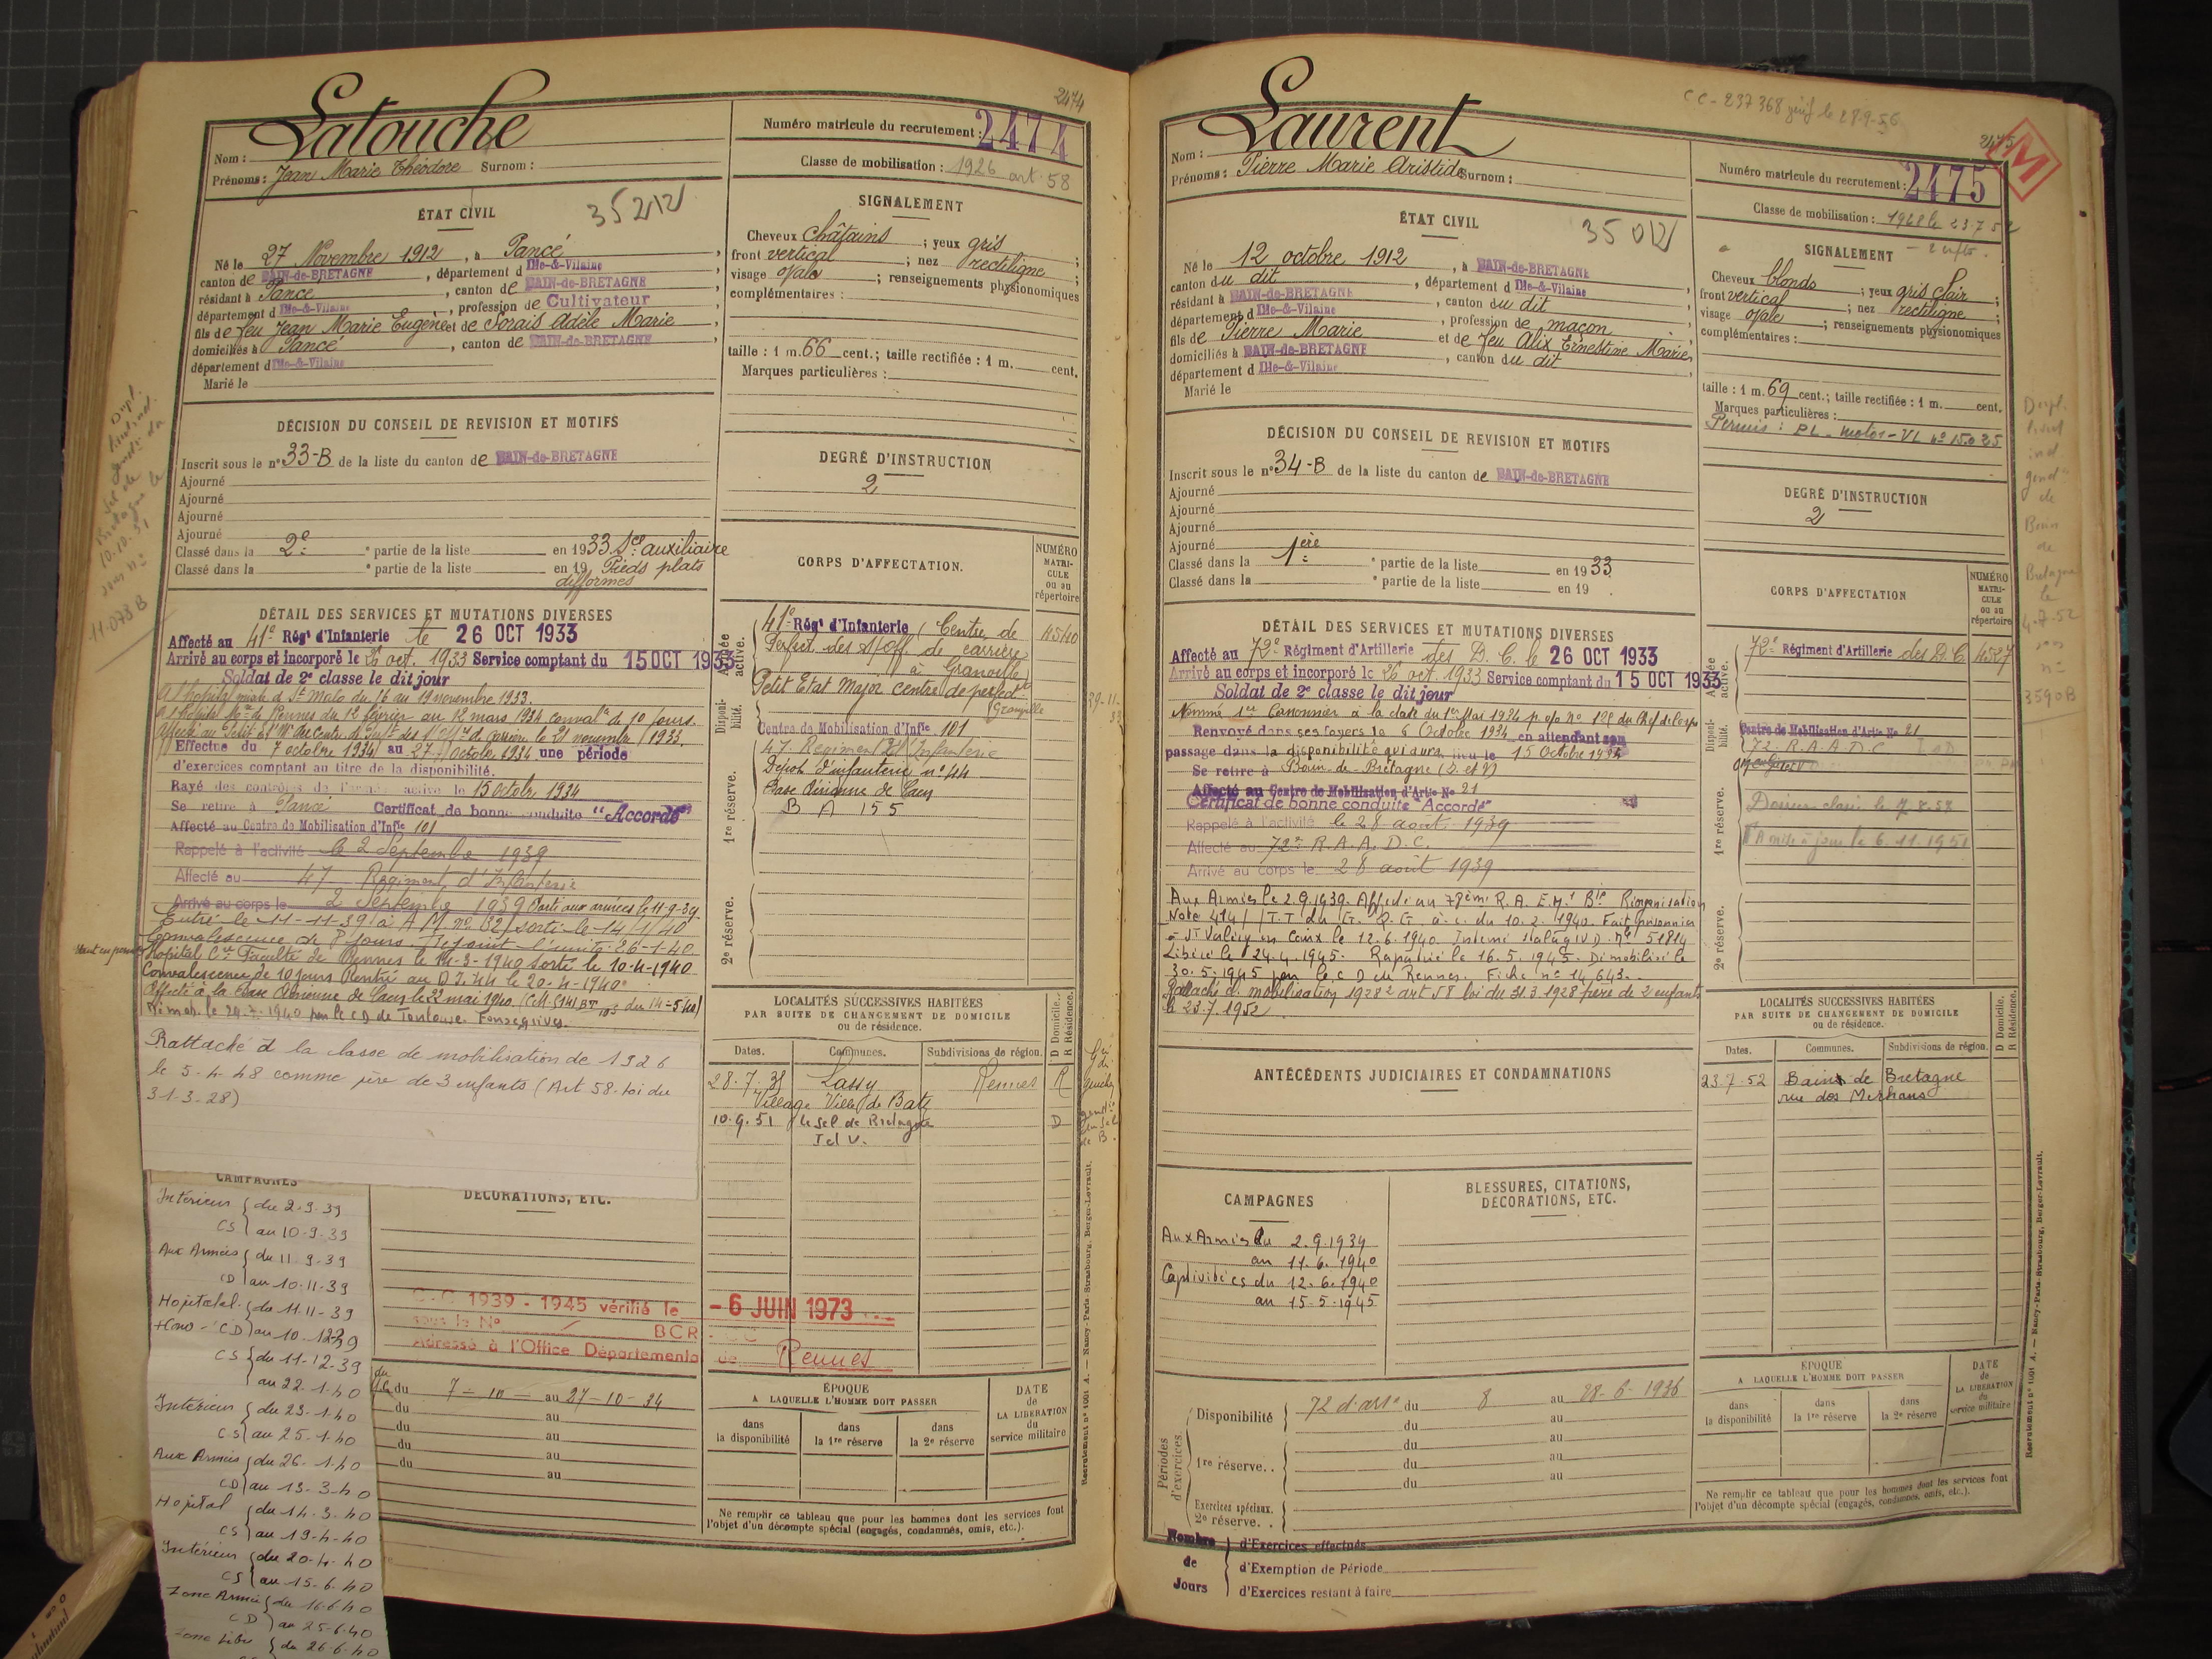 2474
Latouche
Nom :
Prénoms : Jean Marie Théodore Surnom :
Numéro matricule du recrutement : 2474
Classe de mobilisation : 1926 art 58
ÉTAT CIVIL
35212
Né le 27 Novembre 1912, à Pancé,
canton de BAIN-de-BRETAGNE, département d Ille-&-Vilaine
résidant à Pancé, canton de BAIN-de-BRETAGNE
département d Ille-&-Vilaine, profession de Cultivateur
fils de feu Jean Marie Eugène et de Sorais Adèle Marie
domiciliés à Pancé, canton de BAIN-de-BRETAGNE
département d Ille-&-Vilaine
Marié le
SIGNALEMENT
Cheveux châtains ; yeux gris ;
front vertical ; nez rectiligne ;
visage ovale ; renseignements physionomiques
complémentaires :
taille : 1 m. 66 cent. ; taille rectifiée : 1 m. cent.
Marques particulières :
DÉCISION DU CONSEIL DE REVISION ET MOTIFS
Inscrit sous le n° 33-B de la liste du canton de BAIN-de-BRETAGNE
Ajourné
Ajourné
Ajourné
Ajourné
Classé dans la 2e partie de la liste en 1933 Sce auxiliaire
Classé dans la partie de la liste en 19 Pieds plats
difformes
DEGRÉ D'INSTRUCTION
2
DÉTAIL DES SERVICES ET MUTATIONS DIVERSES
Affecté au 41e Régt d'Infanterie le 26 OCT 1933
Arrivé au corps et incorporé le 26 oct. 1933 Service comptant du 15 OCT 1933
Soldat de 2e classe le dit jour
a l'hôpital mixte de St Malo du 16 au 19 novembre 1933.
a l'hôpital Mre de Rennes du 12 février au 12 mars 1934 conval. de 10 jours.
Effectue du 7 octobre 1934 au 27 octobre 1934 une période
d'exercices comptant au titre de la disponibilité.
Rayé des contrôles de l'armée active le 15 octobre 1934
Se retire à Pancé Certificat de bonne conduite "Accordé"
Affecté au Centre de Mobilisation d'Infie 101
Rappelé à l'activité le 2 Septembre 1939
Affecté au 47 Régiment d'Infanterie
Arrivé au corps le 2 Septembre 1939 Parti aux armées le 11-9-39
Entré le 11-11-39 à A M n° 82 sorti le 14/1/40
Convalescence de 8 jours. Rejoint l'unité 26-1-40
Hôpital Cre Faculté de Rennes le 14-3-1940 Sorti le 10-4-1940
Convalescence de 10 jours Rentré au D.I. 44 le 20-4-1940
Affecté à la Base Aérienne de Caen le 22 mai 1940
Démob. le 29.7.1940 par le CD de Toulouse. Fonsegrives.
Rattaché à la classe de mobilisation de 1926
le 5-4-48 comme père de 3 enfants (Art 58. loi du
31-3-28)
CORPS D'AFFECTATION.
NUMÉRO MATRICULE ou au répertoire
Armée active.
41e Régt d'Infanterie (Centre de 4540
Perfect. des S/off. de carrière
à Granville)
Petit Etat Major centre de perfectt
Granville
Disponibilité.
Centre de Mobilisation d'Infie 101
47 Régiment d'Infanterie
1re réserve.
Dépôt d'infanterie n° 44
Base Aérienne de Caen
B A 155
2e réserve.
LOCALITÉS SUCCESSIVES HABITÉES
PAR SUITE DE CHANGEMENT DE DOMICILE
ou de résidence.
D Domicile. R Résidence.
Dates. Communes. Subdivisions de région.
28.7.38 Lassy Rennes R
Village Ville de Bate
10.9.51 Le Sel de Bretagne D
I et V.
CAMPAGNES
DÉCORATIONS, ETC.
Intérieur du 2-9-39
CS au 10-9-39
Aux Armées du 11-9-39
CD au 10-11-39
Hopital. du 11.11-39
CD au 10.12.39
CS du 11-12-39
au 22.1.40
Intérieur du 23-1-40
CS au 25.1.40
Aux Armées du 26.1.40
CD au 13-3-40
Hopital du 14-3-40
CS au 19-4-40
Intérieur du 20-4-40
CS au 15-6-40
Zone Armée du 16.6.40
CD au 25-6-40
Zone Libre du 26-6-40
C.C 1939-1945 vérifié le -6 JUIN 1973
sous le N° BCR
Adressé à l'Office Départemental de Rennes
du 7-10 au 27-10-34
du au
du au
du au
du au
au
ÉPOQUE
A LAQUELLE L'HOMME DOIT PASSER
dans la disponibilité
dans la 1re réserve
dans la 2e réserve
DATE de LA LIBÉRATION du service militaire
Ne remplir ce tableau que pour les hommes dont les services font
l'objet d'un décompte spécial (engagés, condamnés, omis, etc.).
Recrutement n° 1061 A. — Nancy-Paris-Strasbourg, Berger-Levrault.
CC-237368 vérif le 28-9-56
2475
M
Laurent
Nom :
Prénoms : Pierre Marie Aristide Surnom :
Numéro matricule du recrutement : 2475
Classe de mobilisation : 1928 le 23.7.52
2 enfts.
ÉTAT CIVIL
35012
Né le 12 octobre 1912, à BAIN-de-BRETAGNE
canton du dit, département d Ille-&-Vilaine
résidant à BAIN-de-BRETAGNE, canton du dit
département d Ille-&-Vilaine, profession de maçon
fils de Pierre Marie et de feu Alix Ernestine Marie,
domiciliés à BAIN-de-BRETAGNE, canton du dit
département d Ille-&-Vilaine
Marié le
SIGNALEMENT
Cheveux blonds ; yeux gris clair ;
front vertical ; nez rectiligne ;
visage ovale ; renseignements physionomiques
complémentaires :
taille : 1 m. 69 cent. ; taille rectifiée : 1 m. cent.
Marques particulières :
Permis : PL - moto - VL n° 15035
DÉCISION DU CONSEIL DE REVISION ET MOTIFS
Inscrit sous le n° 34-B de la liste du canton de BAIN-de-BRETAGNE
Ajourné
Ajourné
Ajourné
Ajourné
Classé dans la 1ère partie de la liste en 1933
Classé dans la partie de la liste en 19
DEGRÉ D'INSTRUCTION
2
DÉTAIL DES SERVICES ET MUTATIONS DIVERSES
Affecté au 72e Régiment d'Artillerie des D. C. le 26 OCT 1933
Arrivé au corps et incorporé le 26 oct. 1933 Service comptant du 15 OCT 1933
Soldat de 2e classe le dit jour
Nommé 1er Canonnier à la date du 1er Mai 1934 du Chef de Corps
Renvoyé dans ses foyers le 6 Octobre 1934 en attendant son
passage dans la disponibilité qui aura lieu le 15 Octobre 1934
Se retire à Bain-de-Bretagne (I. et V)
Affecté au Centre de Mobilisation d'Artie No 21
Certificat de bonne conduite "Accordé"
Rappelé à l'activité le 28 août 1939
Affecté au 72e R.A.A.D.C.
Arrivé au corps le 28 août 1939
Aux Armées le 2.9.1939. Affecté au 78ème R.A. Réorganisation
Note 414 du G.Q.G. à c. du 10.2.1940. Fait prisonnier
à St Valéry en Caux le 12.6.1940 Interné Stalag IV D. n° 51814
Libéré le 24.4.1945. Rapatrié le 16.5.1945. Démobilisé le
30.5.1945 par le C D de Rennes. Fiche n° 14.643.
Rattaché cl. mobilisation 1928 art 58 loi du 31.3.1928 père de 2 enfants
le 23.7.1952
ANTÉCÉDENTS JUDICIAIRES ET CONDAMNATIONS
CORPS D'AFFECTATION
NUMÉRO MATRICULE ou au répertoire
Armée active.
72e Régiment d'Artillerie des D.C. 4527
Disponibilité.
Centre de Mobilisation d'Artie No 21
72 R.A.A.D.C
1re réserve.
Dossier classé le 7.8.53
mise à jour le 6.11.1951
2e réserve.
LOCALITÉS SUCCESSIVES HABITÉES
PAR SUITE DE CHANGEMENT DE DOMICILE
ou de résidence.
D Domicile. R Résidence.
Dates. Communes. Subdivisions de région.
23.7.52 Bain de Bretagne
rue des Merhans
CAMPAGNES
BLESSURES, CITATIONS,
DÉCORATIONS, ETC.
Aux Armées du 2.9.1939
au 11.6.1940
Captivité cs du 12.6.1940
au 15.5.1945
Périodes d'exercices.
Disponibilité 72 d'artie du 8 au 28-6-1936
du au
1re réserve. . du au
du au
du au
Exercices spéciaux.
2e réserve. .
Nombre de Jours
d'Exercices effectués
d'Exemption de Période
d'Exercices restant à faire
ÉPOQUE
A LAQUELLE L'HOMME DOIT PASSER
dans la disponibilité
dans la 1re réserve
dans la 2e réserve
DATE de LA LIBÉRATION du service militaire
Ne remplir ce tableau que pour les hommes dont les services font
l'objet d'un décompte spécial (engagés, condamnés, omis, etc.).
Recrutement n° 1061 A. — Nancy-Paris-Strasbourg, Berger-Levrault.
Dupl.
livret
ind.
gend.
de
Bain
de
Bretagne
le
4.7.52
sous
n°
3590B